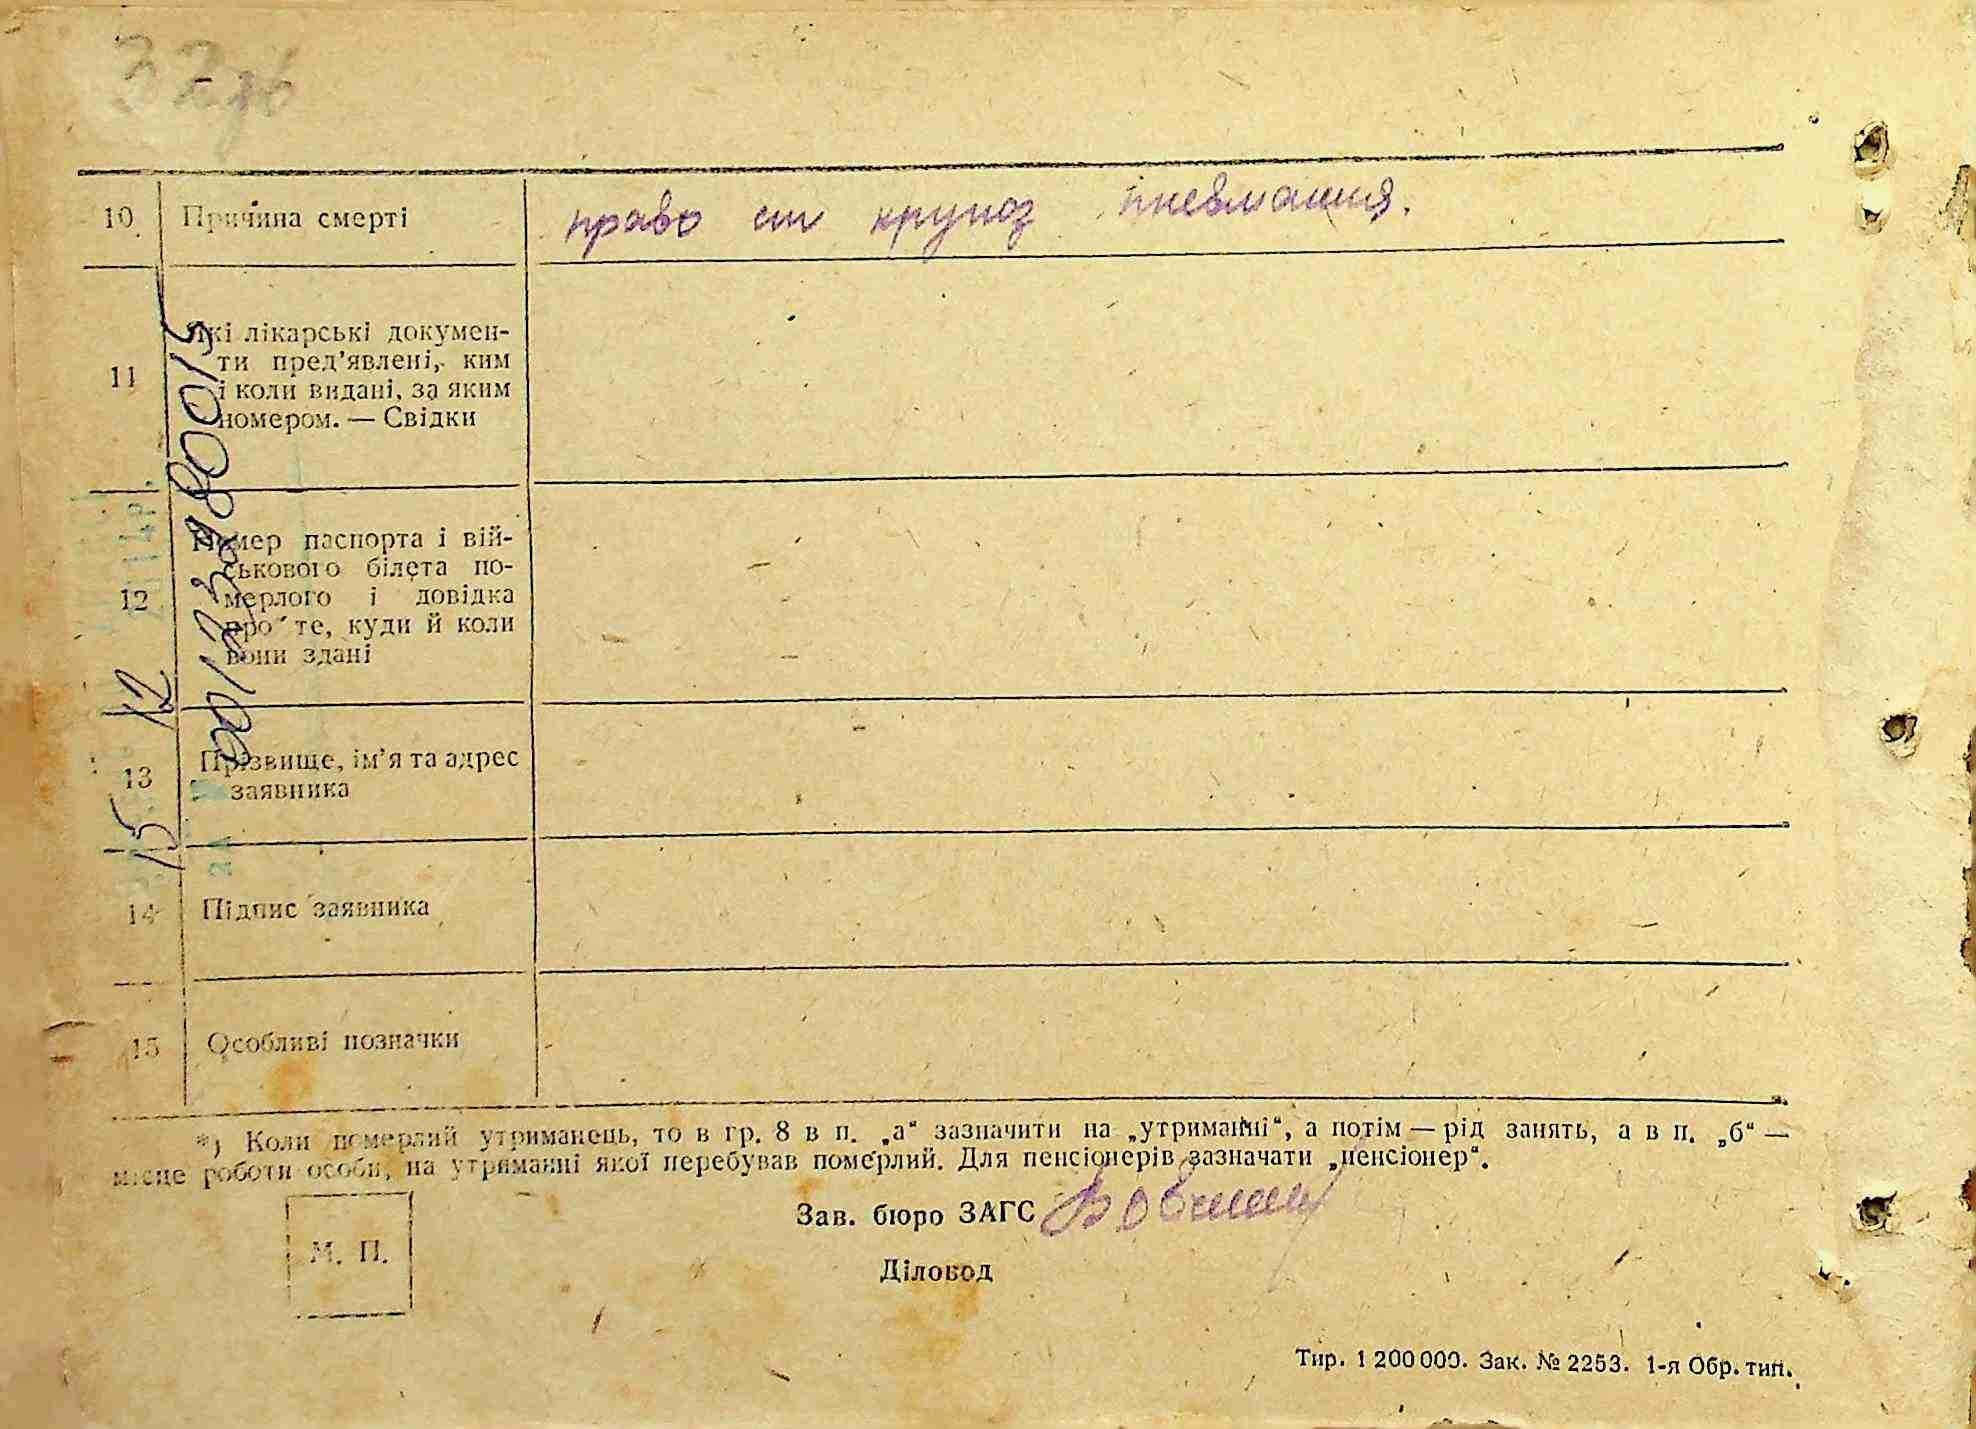 37
10 Причина смерті право ст крупоз пневмания.
11 Які лікарські докумен-
ти пред’явлені, ким
і коли видані, за яким
номером. — Свідки
12 Номер паспорта і вій-
ськового білета по-
мерлого і довідка
про те, куди й коли
вони здані
13 Прізвище, ім’я та адрес
заявника
14 Підпис заявника
15 Особливі позначки
15 12
*) Коли померлий утриманець, то в гр. 8 в п. „а“ зазначити на „утриманні“, а потім — рід занять, а в п. „б“ —
місце роботи особи, на утриманні якої перебував померлий. Для пенсіонерів зазначати „пенсіонер“.
Зав. бюро ЗАГС
М. П.
Діловод
Тир. 1 200 000. Зак. № 2253. 1-я Обр. тип.